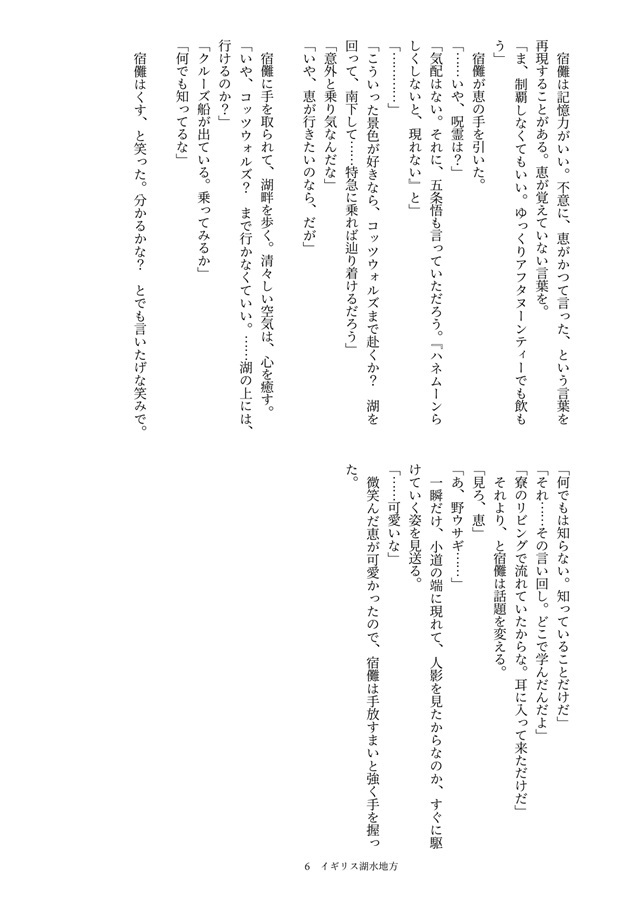 宿儺は記憶力がいい。不意に、恵がかつて言った、という言葉を
再現することがある。恵が覚えていない言葉を。
「ま、制覇しなくてもいい。ゆっくりアフタヌーンティーでも飲も
う」
　宿儺が恵の手を引いた。
「……いや、呪霊は？」
「気配はない。それに、五条悟も言っていただろう。『ハネムーンら
しくしないと、現れない』と」
「…………」
「こういった景色が好きなら、コッツウォルズまで赴くか？　湖を
回って、南下して……特急に乗れば辿り着けるだろう」
「意外と乗り気なんだな」
「いや、恵が行きたいのなら、だが」
　宿儺に手を取られて、湖畔を歩く。清々しい空気は、心を癒す。
「いや、コッツウォルズ？　まで行かなくていい。……湖の上には、
行けるのか？」
「クルーズ船が出ている。乗ってみるか」
「何でも知ってるな」
　宿儺はくす、と笑った。分かるかな？　とでも言いたげな笑みで。
「何でもは知らない。知っていることだけだ」
「それ……その言い回し。どこで学んだんだよ」
「寮のリビングで流れていたからな。耳に入って来ただけだ」
　それより、と宿儺は話題を変える。
「見ろ、恵」
「あ、野ウサギ……」
　一瞬だけ、小道の端に現れて、人影を見たからなのか、すぐに駆
けていく姿を見送る。
「……可愛いな」
　微笑んだ恵が可愛かったので、宿儺は手放すまいと強く手を握っ
た。
6　イギリス湖水地方